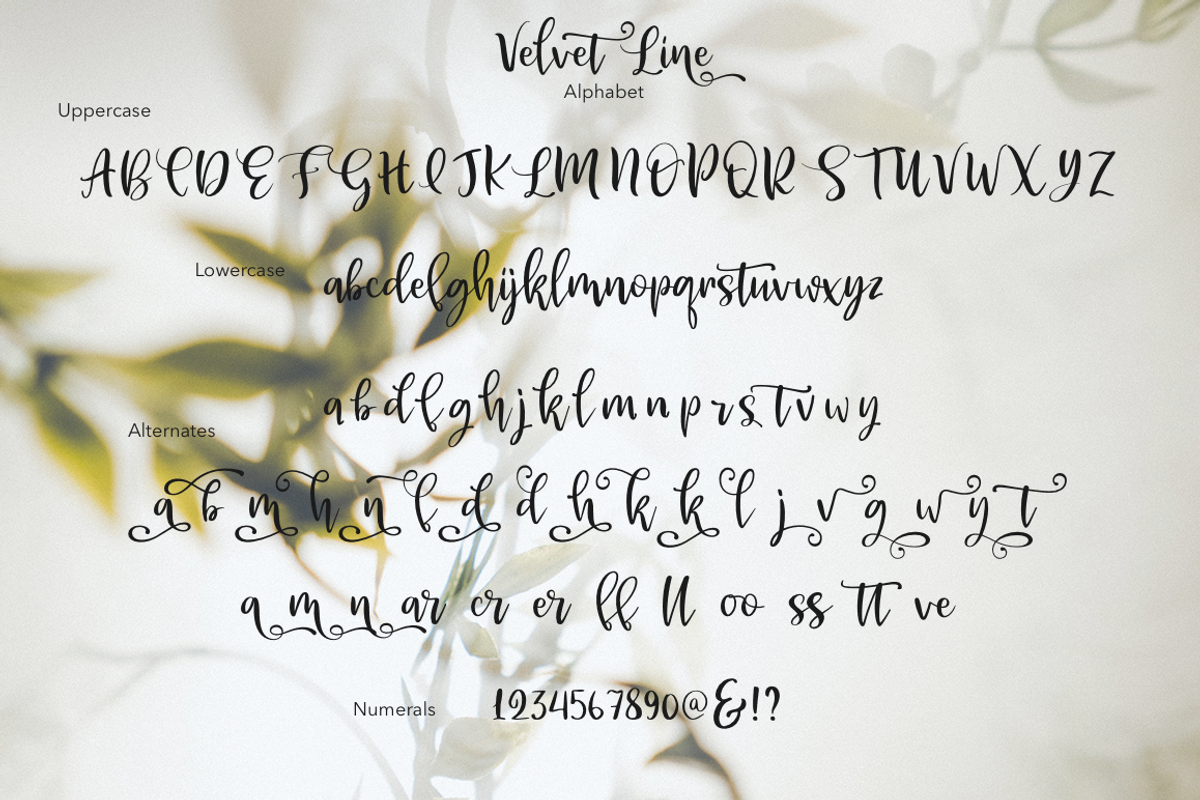 Velvet Line
Alphabet
Uppercase
ABCDEFGHIJKLMNOPQRSTUVWXYZ
Lowercase
abcdefghijklmnopqrstuvwxyz
a b d f g h j k l m n p r s t v w y
Alternates
a b m h n f d d h k k l j v g w y t
a m n ar cr er ff ll oo ss tt ve
Numerals
1234567890@&!?